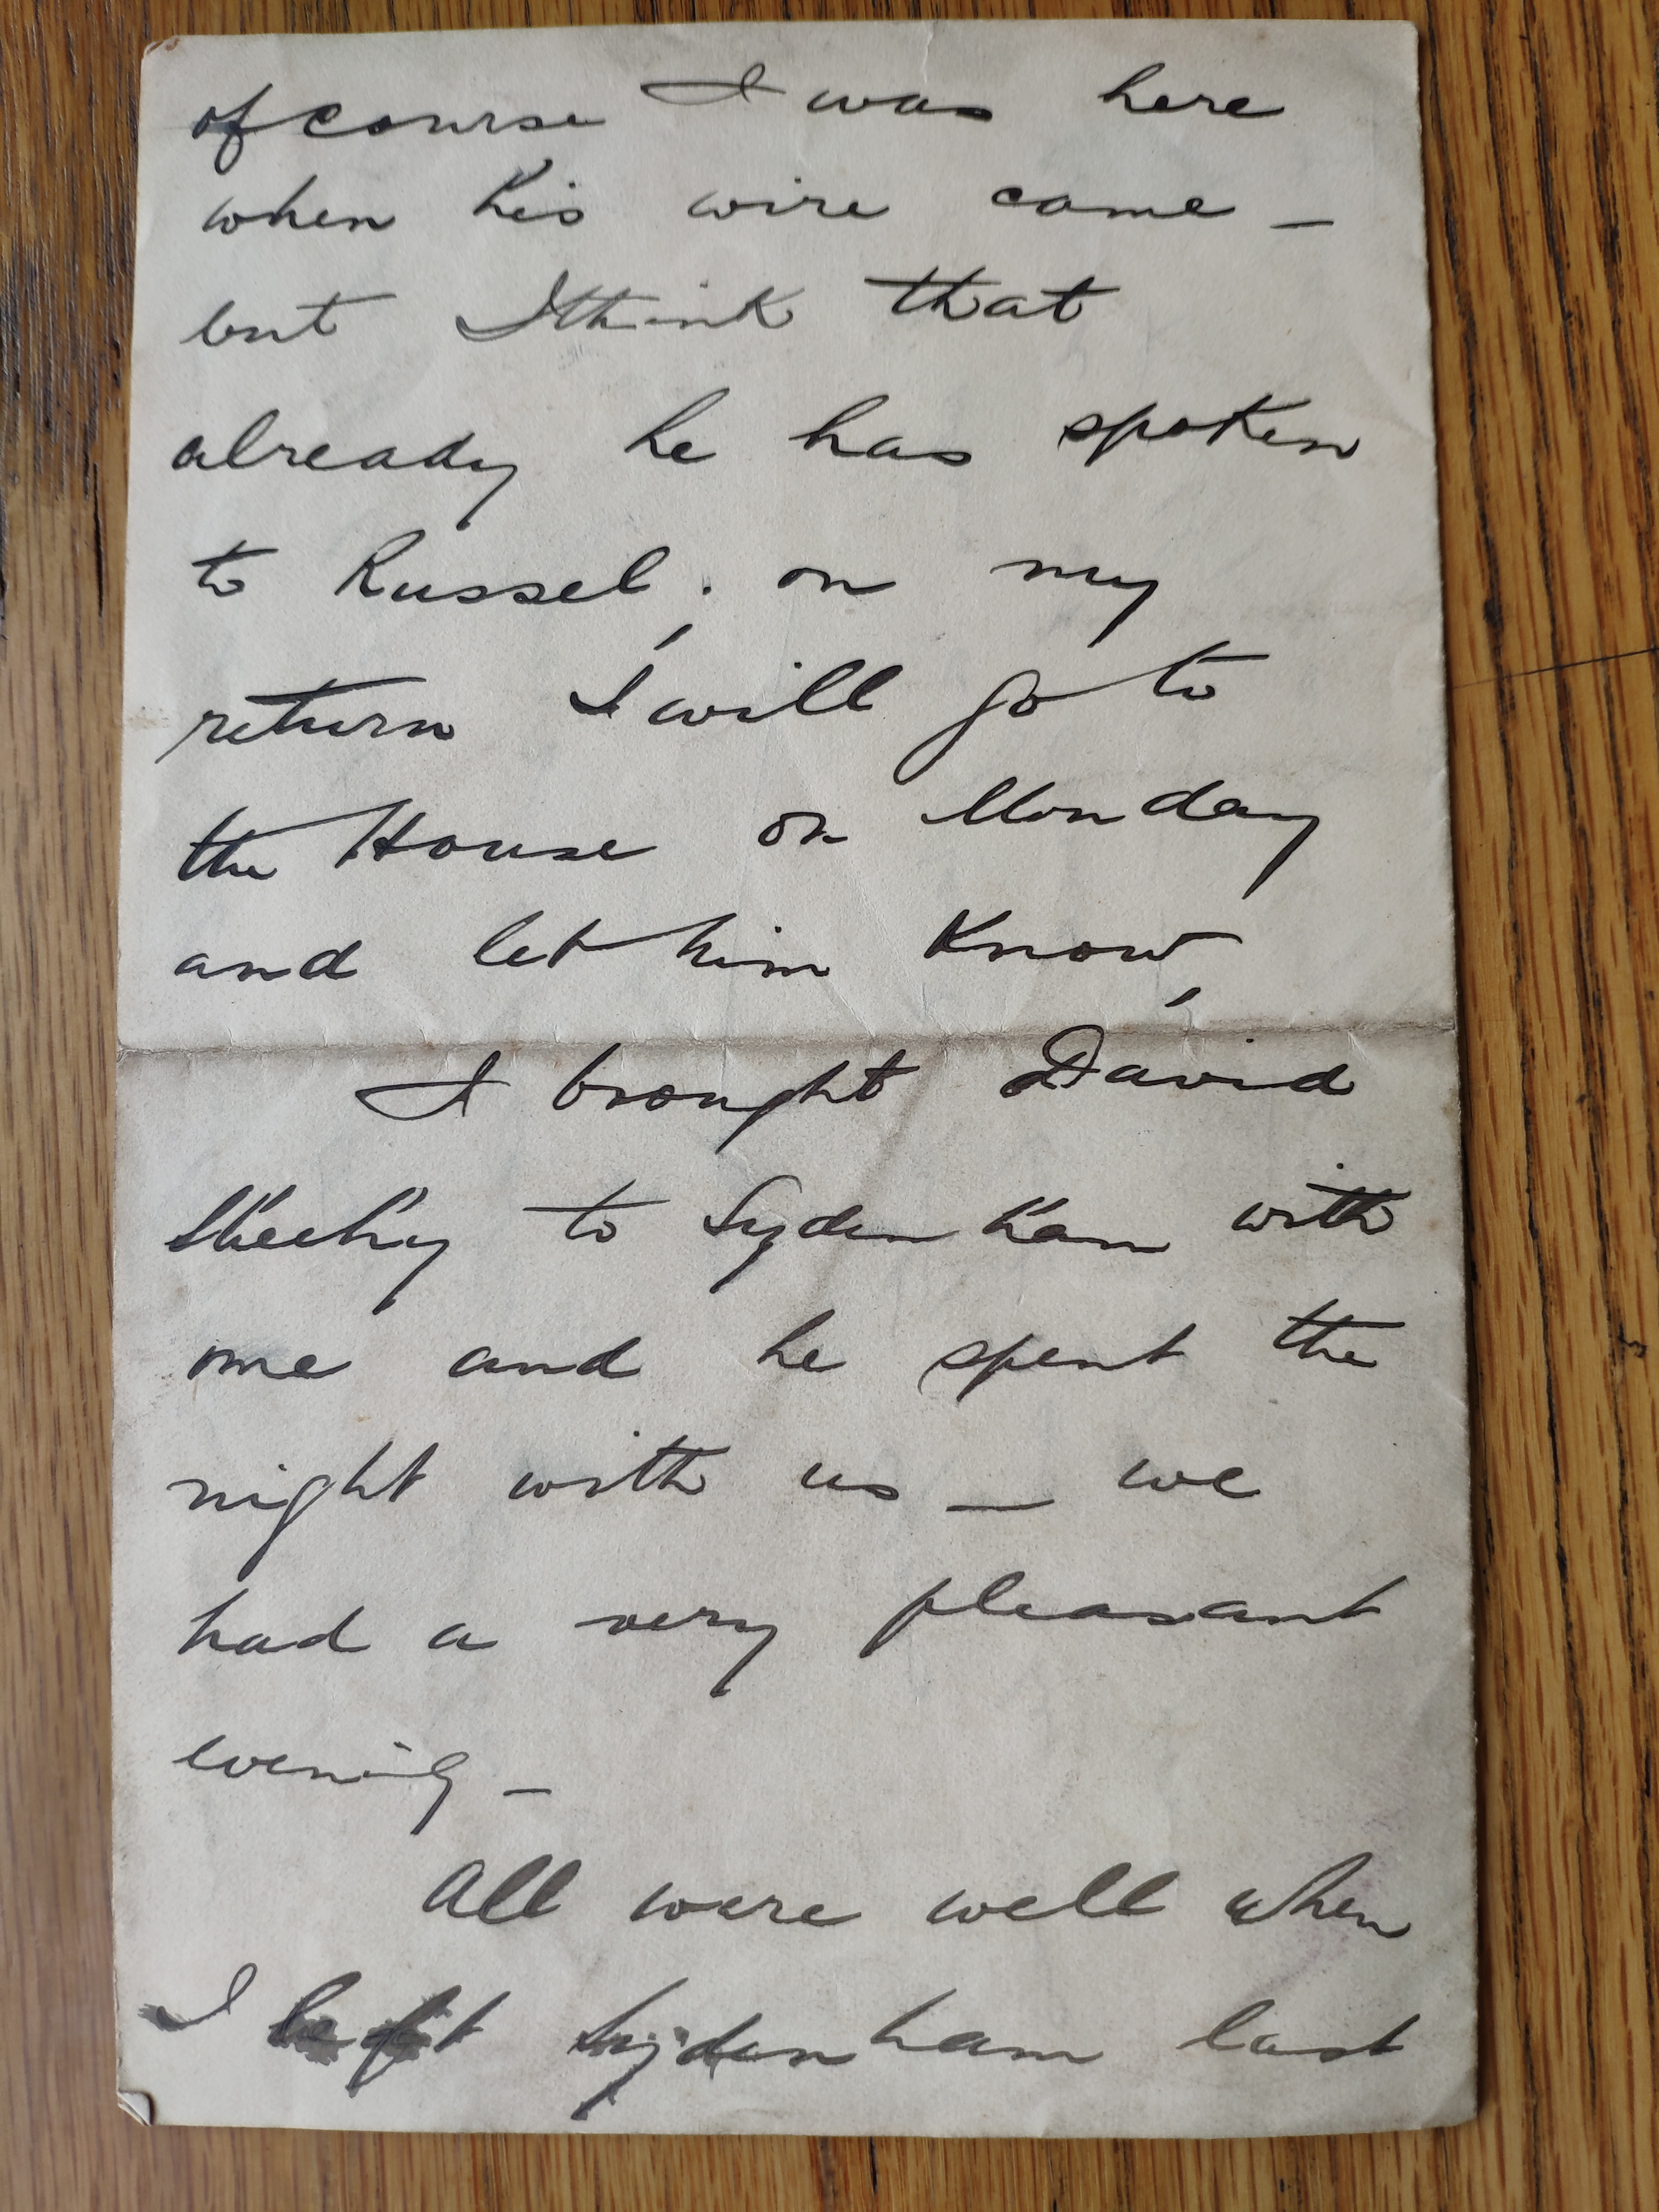 of course I was here
when his wire came —
but I think that
already he has spoken
to Russel. on my
return I will go to
the House on Monday
and let him know,
I brought David
Sheehy to Sydenham with
me and he spent the
night with us — we
had a very pleasant
evening —
All were well when
I left Sydenham last